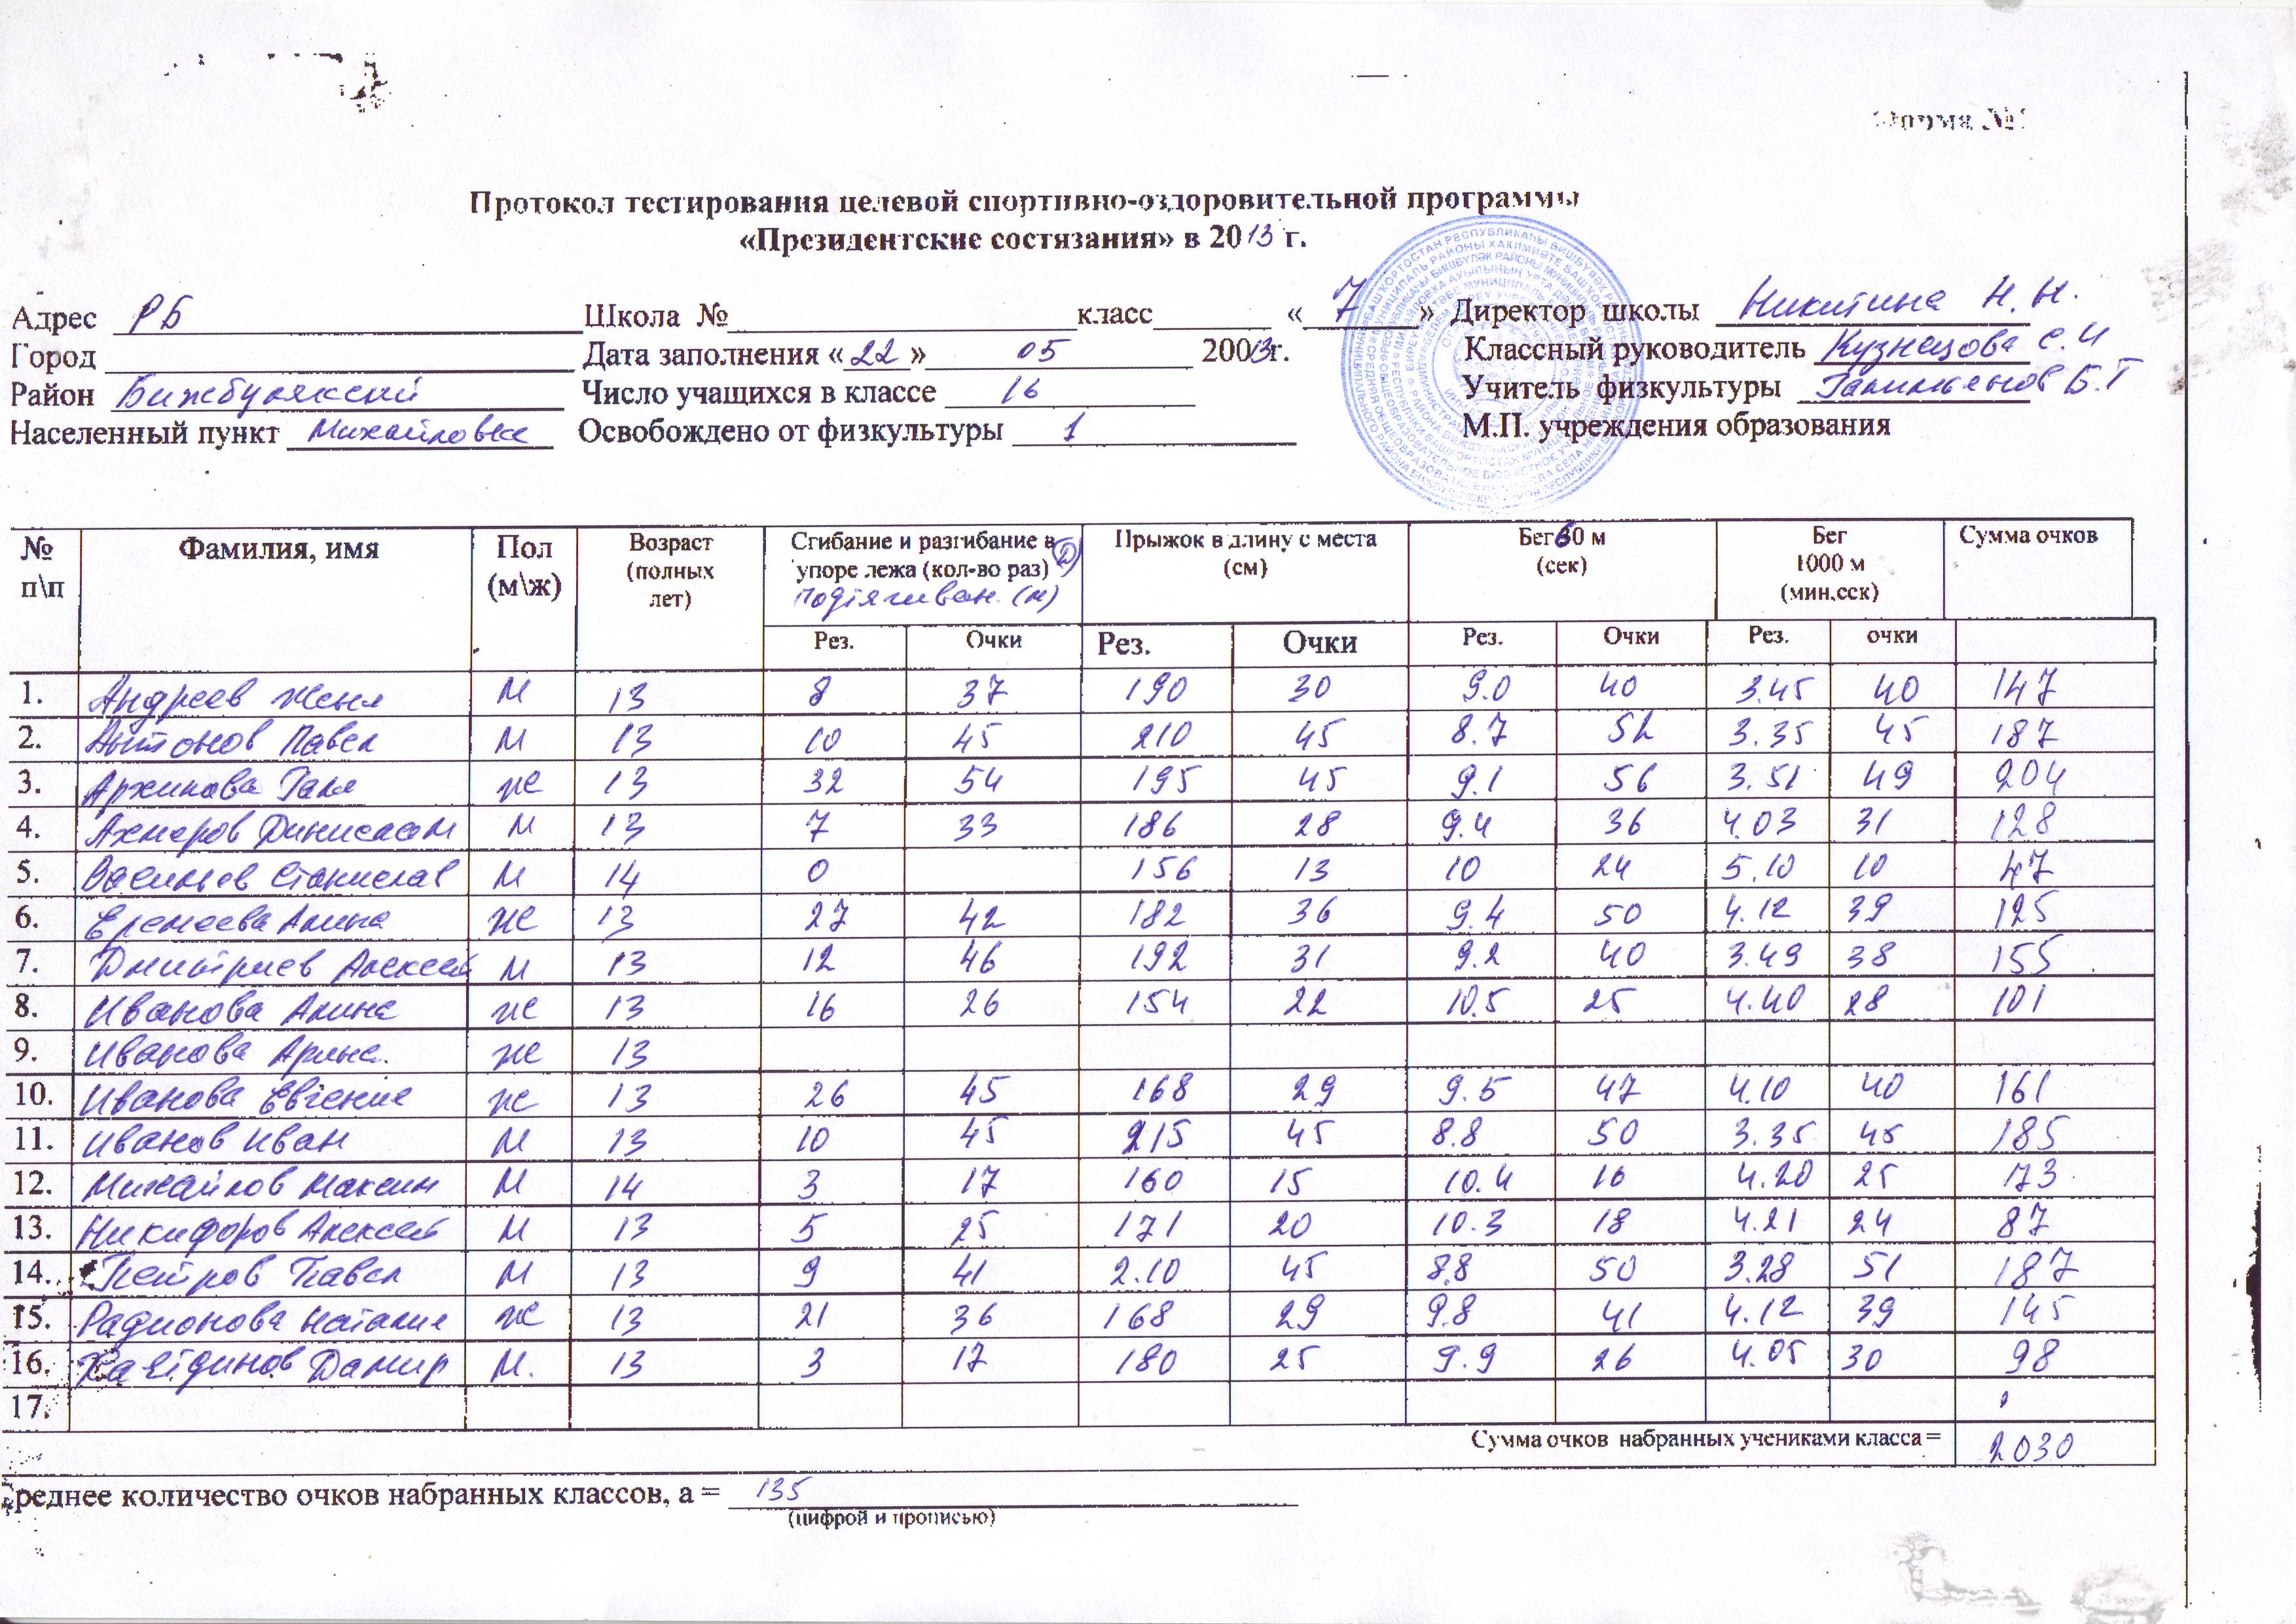 Форма №
Протокол тестирования целевой спортивно-оздоровительной программы
«Президентские состязания» в 2013 г.
Адрес РБ Школа № класс « 7 » Директор школы Никитина Н. Н.
Город Дата заполнения « 22 » 05 20013г. Классный руководитель Кузнецова С. И
Район Бижбулякский Число учащихся в классе 16 Учитель физкультуры Б.Г
Населенный пункт Михайловка Освобождено от физкультуры 1 М.П. учреждения образования
№ п\п Фамилия, имя Пол (м\ж) Возраст (полных лет) Сгибание и разгибание в упоре лежа (кол-во раз) (Д) подтягиван. (м) Прыжок в длину с места (см) Бег 60 м (сек) Бег 1000 м (мин,сек) Сумма очков
Рез. Очки Рез. Очки Рез. Очки Рез. очки
1. Андреев Женя М 13 8 37 190 30 9.0 40 3.45 40 147
2. Антонов Павел М 13 10 45 210 45 8.7 52 3.35 45 187
3. Архипова Галя ж 13 32 54 195 45 9.1 56 3.51 49 204
4. Ахмеров Динислам М 13 7 33 186 28 9.4 36 4.03 31 128
5. Васильев Станислав М 14 0 156 13 10 24 5.10 10 47
6. Еремеева Алина ж 13 27 42 182 36 9.4 50 4.12 39 125
7. Дмитриев Алексей М 13 12 46 192 31 9.2 40 3.49 38 155
8. Иванова Алина ж 13 16 26 154 22 10.5 25 4.40 28 101
9. Иванова Арина ж 13
10. Иванова Евгения ж 13 26 45 168 29 9.5 47 4.10 40 161
11. Иванов Иван М 13 10 45 215 45 8.8 50 3.35 45 185
12. Михайлов Максим М 14 3 17 160 15 10.4 16 4.20 25 73
13. Никифоров Алексей М 13 5 25 171 20 10.3 18 4.21 24 87
14. Петров Павел М 13 9 41 2.10 45 8.8 50 3.28 51 187
15. Радионова Наталия ж 13 21 36 168 29 9.8 41 4.12 39 145
16. Дамир М. 13 3 17 180 25 9.9 26 4.05 30 98
17.
Сумма очков набранных учениками класса = 2030
реднее количество очков набранных классов, а = 135
(цифрой и прописью)